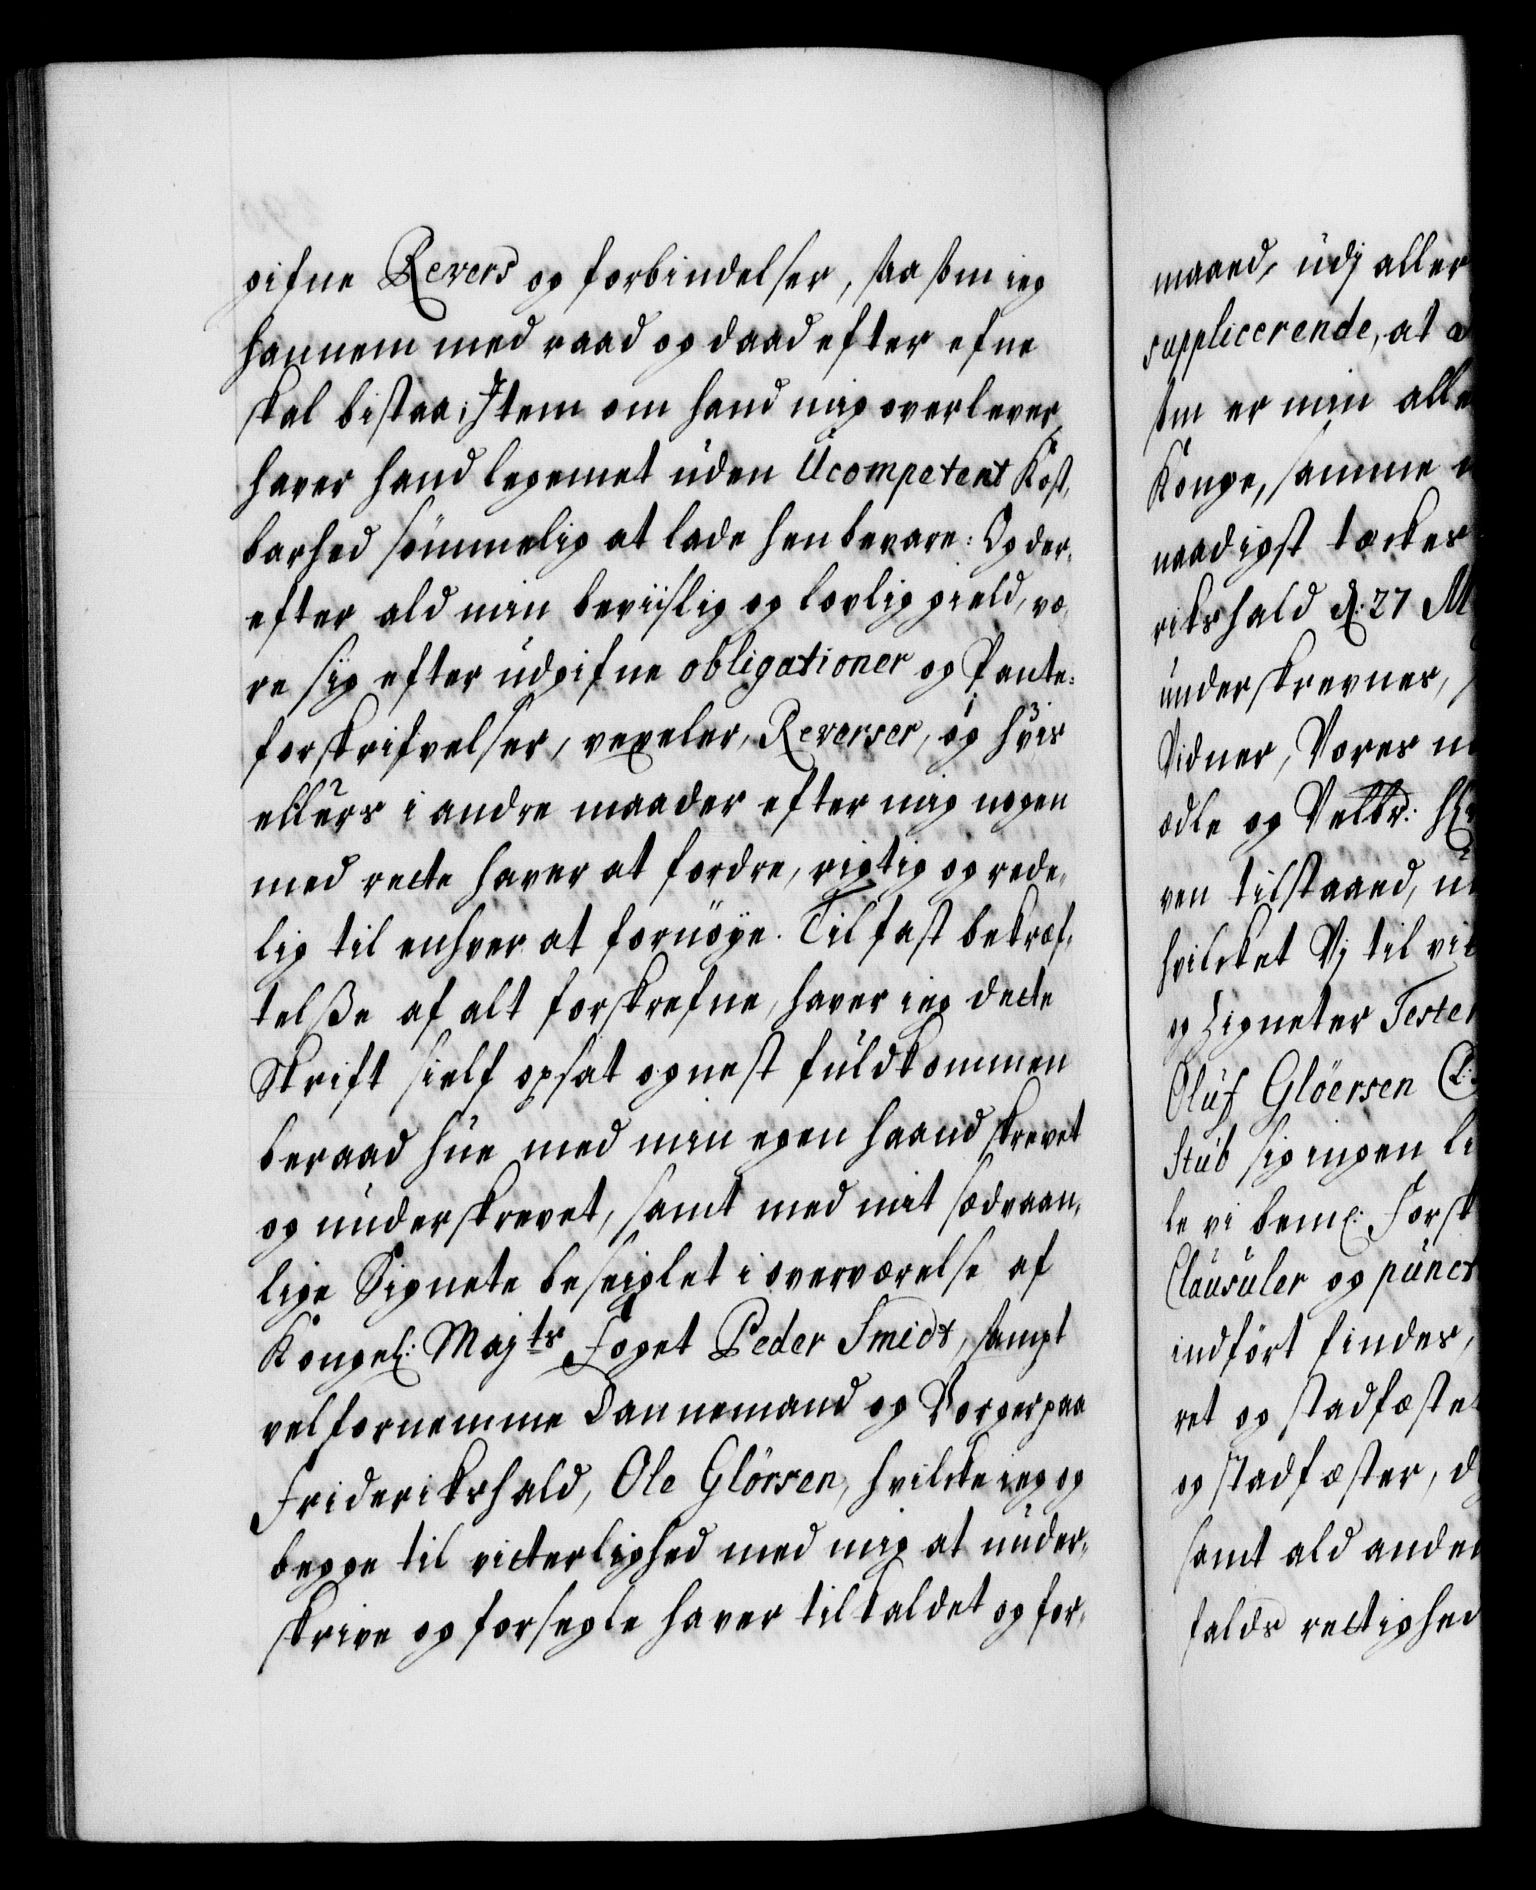 gifne Revers og forbindelser, saa som ieg
hannem med raad og daad efter efne
skal bistaa; Item om hand mig overlever,
haver hand legemet uden Ucompetent Kost,
barhed sömmelig at lade hen bevare: Og der,
efter ald min beviislig og lovlig gield, væ,
re sig efter udgifne obligationer og Pante,
forskrifvelser, vexeler, Reverser, og hvis
ellers i andre maader efter mig nogen
med rette haver at fordre, rigtig og rede,
lig til enhver at fornöye. Til fast bekræf,
telsße af alt forskrefne, haver ieg dette
Skrift sielf opsat og nest fuldkommen
beraad hue med min egen haand skrevet
og underskrevet, samt med mit sædvaan,
lige Signete beseiglet i overværelse af
Kongel: Majts Foget Peder Smidt, sampt
velfornemme Dannemand og Borger paa
Friderikshald, Ole Glörsen, hvilcke ieg og
begge til vitterlighed med mig at under,
skrive og forsegle haver tilkaldet og for,
maaed, udj aller
supplicerende, at
som er min alle
Konge, samme
naadigst tæckes
rikshald d: 27 M
underskrevnes,
Vidner, Vores
ædle og Velbr:
ven tilstaaed,
hvilcket Vj til vit
og Zigneter Teste
Oluf Glöersen
Stub sig ingen
le vi bem: Forsk
Clausuler og punct
indfört findes,
ret og stadfæste
og stadfæster,
samt ald anden
falds rettighed